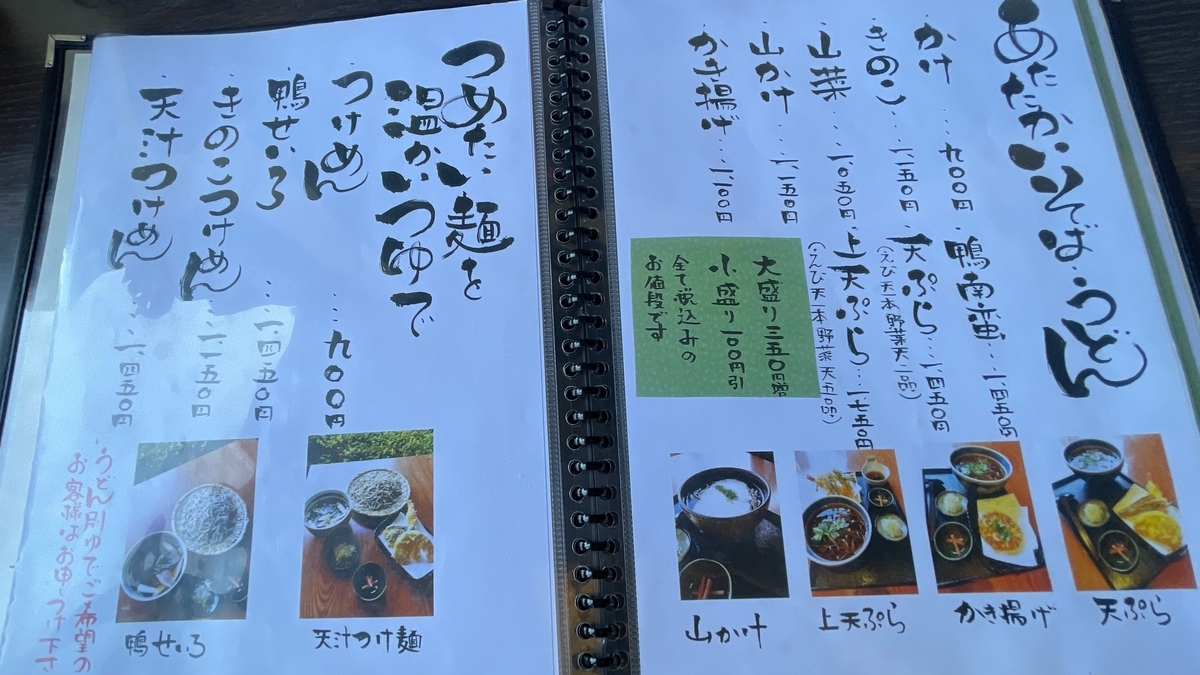 あたたかいそば・うどん
かけ…九〇〇円
きのこ…一、一五〇円
山菜…一、〇五〇円
山かけ…一、一五〇円
かき揚げ…一、一〇〇円
鴨南蛮…一、四五〇円
天ぷら…一、四五〇円
(えび天一本 野菜天二品)
上天ぷら…一、七五〇円
(えび天一本 野菜天五品)
大盛り三五〇円増
小盛り一〇〇円引
全て税込みの
お値段です
天ぷら
かき揚げ
上天ぷら
山かけ
つめたい麺を
温かいつゆで
つけめん…九〇〇円
鴨せいろ…一、四五〇円
きのこつけめん…一、一五〇円
天汁つけめん…一、四五〇円
天汁つけ麺
鴨せいろ
うどん別ゆでご希望の
お客様はお申しつけ下さ